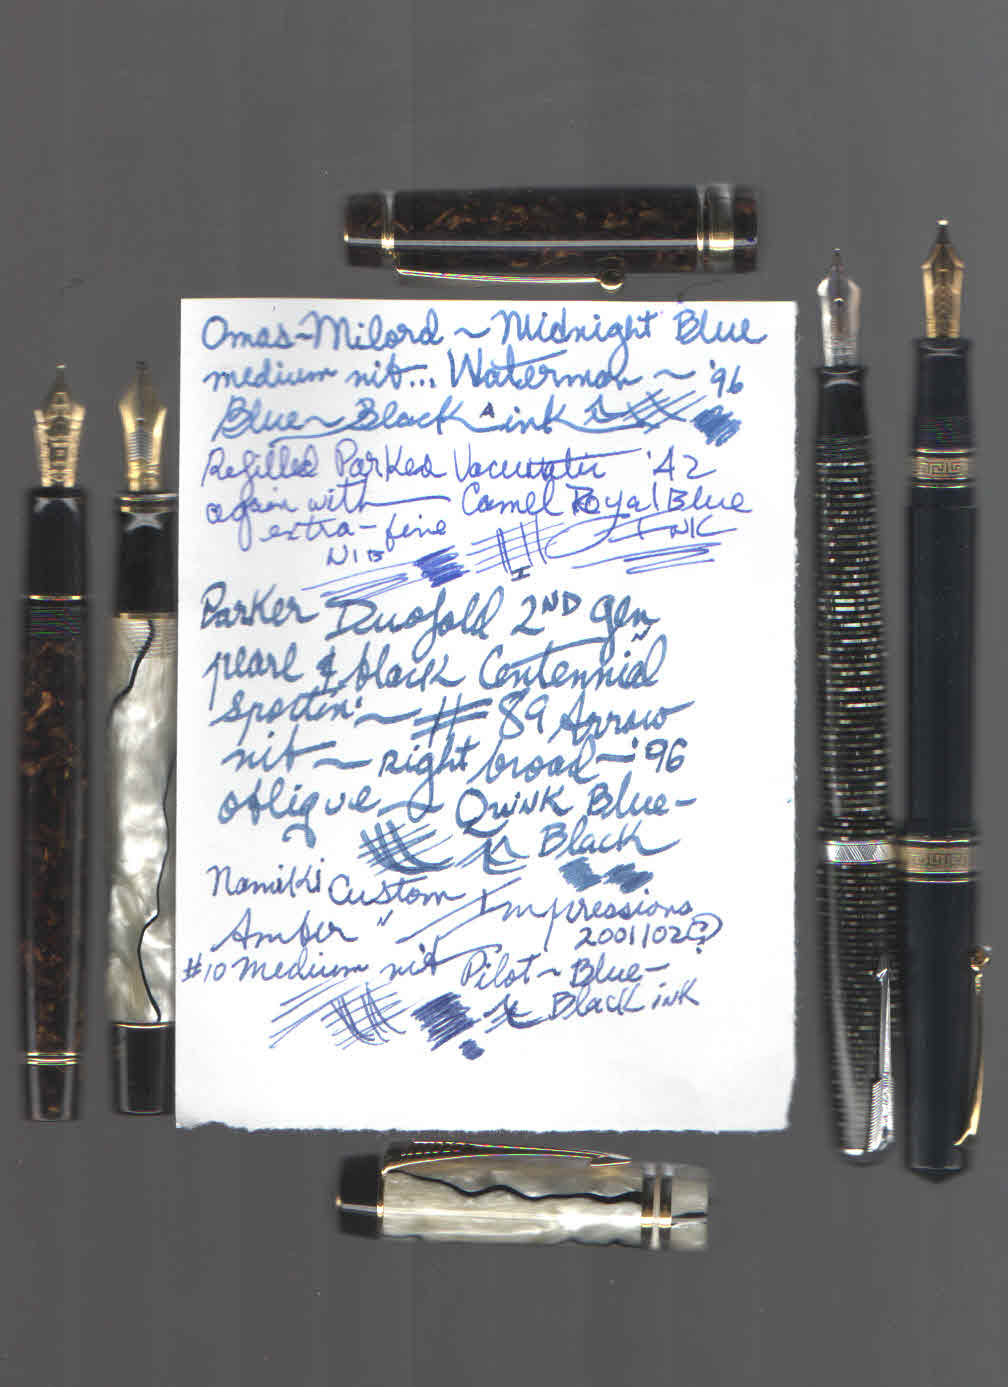 Omas~Milord ~ Midnight Blue
medium nib... Waterman ~ '96
Blue~Black ink
Refilled Parked Vacumatic '42
again with Camel Royal Blue
extra-fine INK
NIB
Parker Duofold 2ND gen
pearl & black Centennial
~ # 89 Arrow
nib ~ right broad ~ '96
oblique ~ Quink Blue-
Black
Namiki Custom Impressions
Amber " 2001/02(?)
#10 medium nib Pilot ~ Blue-
Black ink